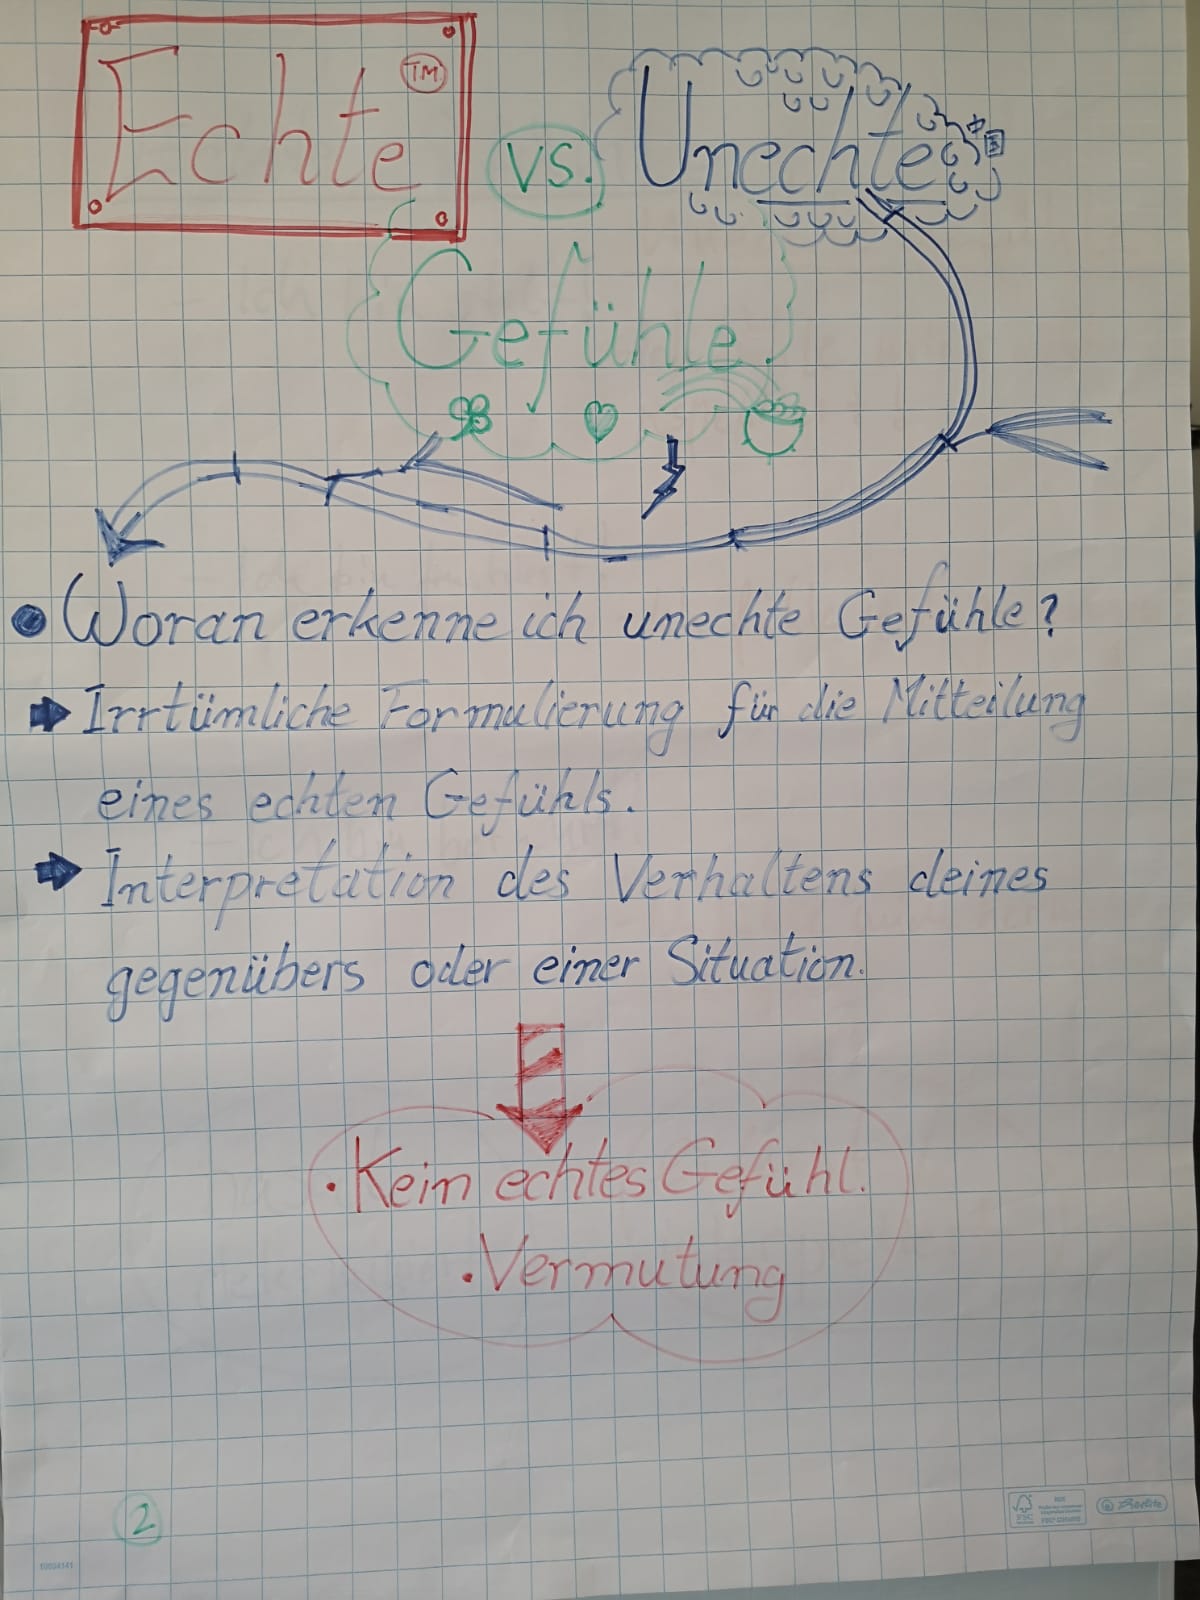 Echte TM
vs. Unechte
Gefühle
• Woran erkenne ich unechte Gefühle?
Irrtümliche Formulierung für die Mitteilung
eines echten Gefühls.
Interpretation des Verhaltens deines
gegenübers oder einer Situation.
• Kein echtes Gefühl.
• Vermutung
2
FSC
herlitz
10694141